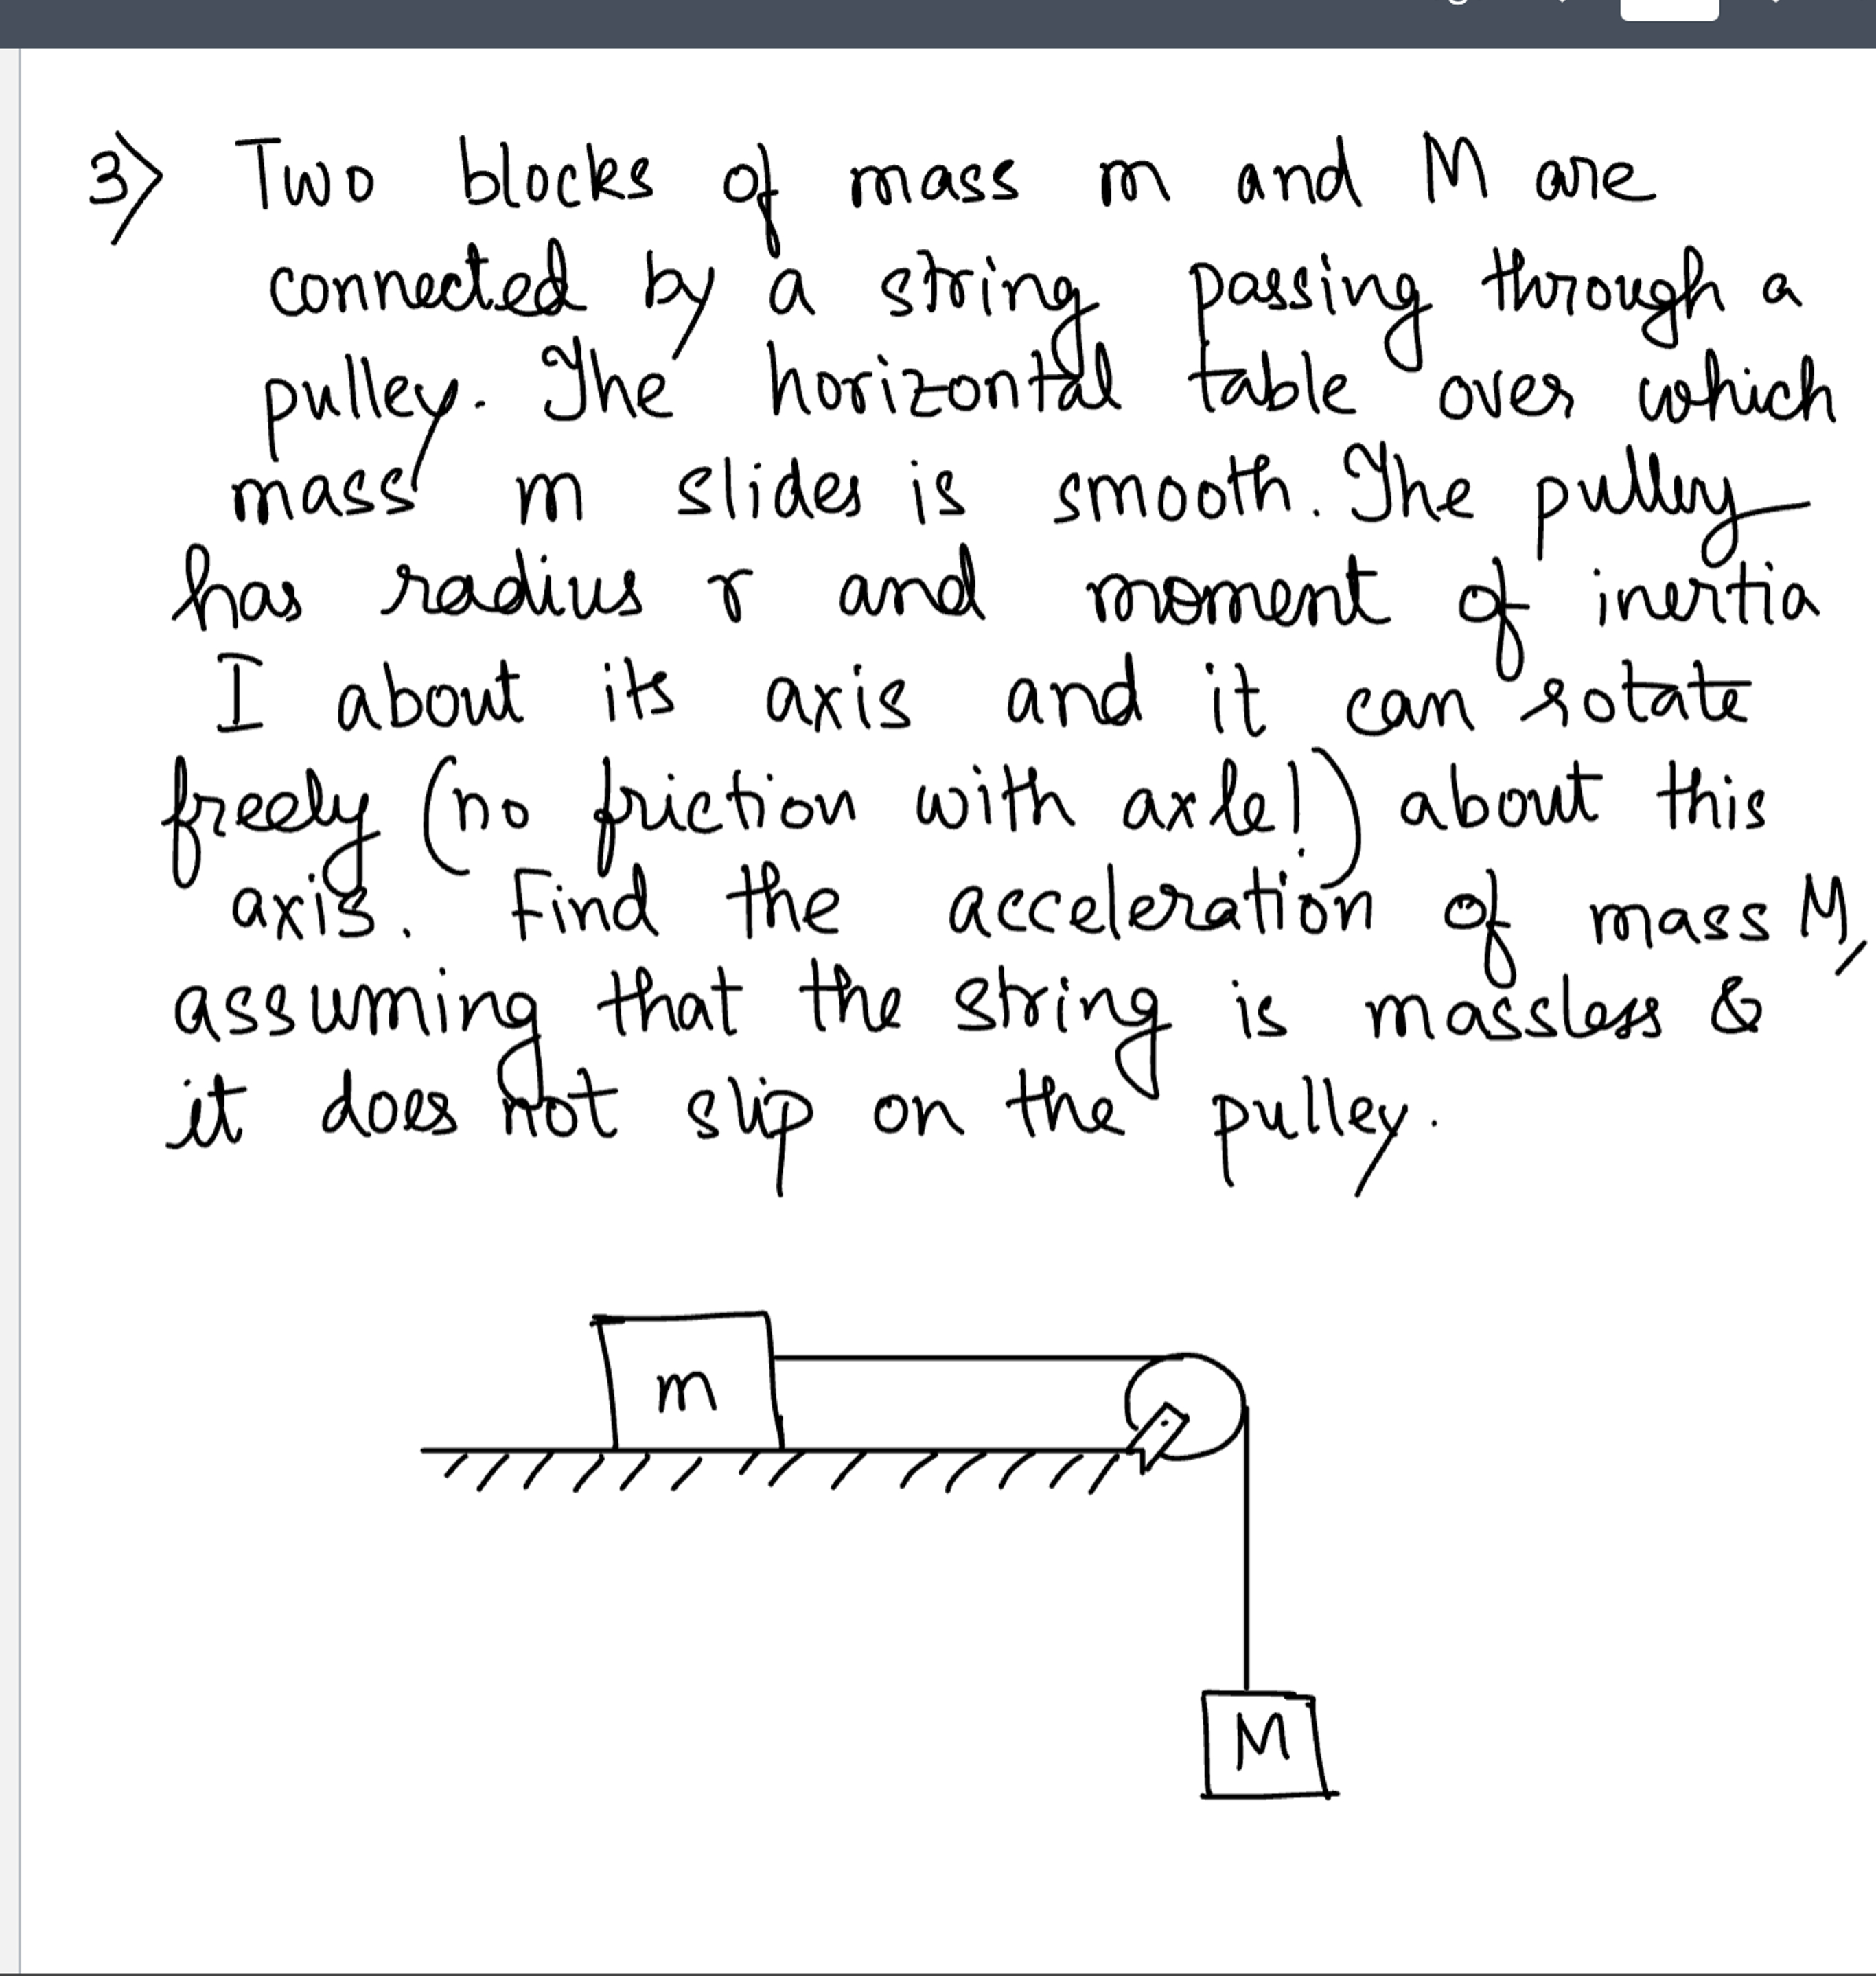 3) Two blocks of mass m and M are
connected by a string passing through a
pulley. The horizontal table over which
mass m slides is smooth. The pulley
has radius r and moment of inertia
I about its axis and it can rotate
freely (no friction with axle!) about this
axis. Find the acceleration of mass M,
assuming that the string is massless &
it does not slip on the pulley.
m
M